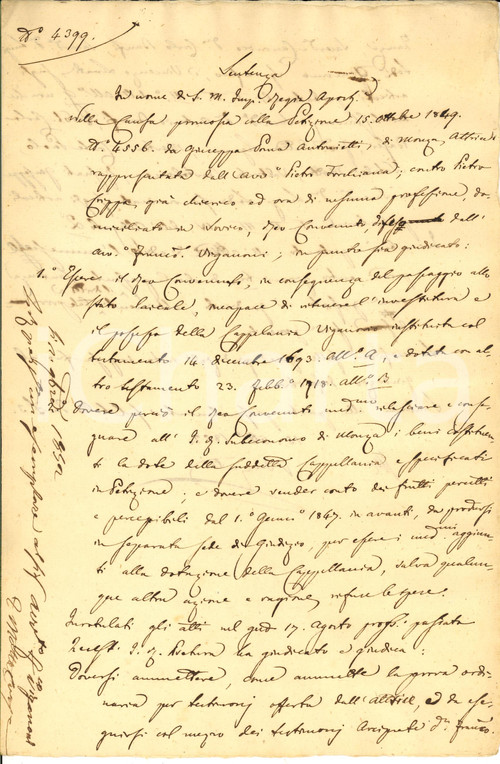 N.° 4399.
Sentenza
In nome di S. M. Imp. Regia Apost.
Nella Causa promossa colla Petizione 15. Ottobre 1849.
N.° 4556. da Giuseppe Antonietti, di Monza, Attrice
rappresentata dall'Avv.° Pietro; contro Pietro
Crippa, già chierico ed ora di nessuna professione, do-
miciliato in Sovico, Reo Convenuto, dall'
avv.° Franc.° Viganoni; in punto sia giudicato:
1.° Essere il Reo Convenuto, in conseguenza del passaggio allo
stato laicale, incapace di ritenere l'investitura e
il possesso della Cappellania istituita col
testamento 14. dicembre 1693. All.° A, e dotata con al-
tro testamento 23. Febb.° 1718. all.° B
Dovere perciò il Reo Convenuto med.mo rilasciare e conse-
gnare all'I. R. Subeconomo di Monza i beni costituen-
ti la dote della suddetta Cappellania e specificati
in Petizione; e dovere render conto dei frutti percetti
e percepibili dal 1.° Genn.° 1847. in avanti, da prodursi
in separata sede di Giudizio, per essere i med.mi aggiun-
ti alla dotazione della Cappellania, salva qualun-
que altra azione e ragione, rifuse le spese.
Inrotulati gli atti nel giorno 17. Agosto pross. passato
l'I. R. Pretura ha giudicato e giudica:
Doversi ammettere, come ammette la prova ordi-
naria per testimonj offerta dall'attrice, e da ese-
guirsi col mezzo dei testimonj Arciprete D.n Franc.°
1850
un esemplare all'Avvocato
Viganoni